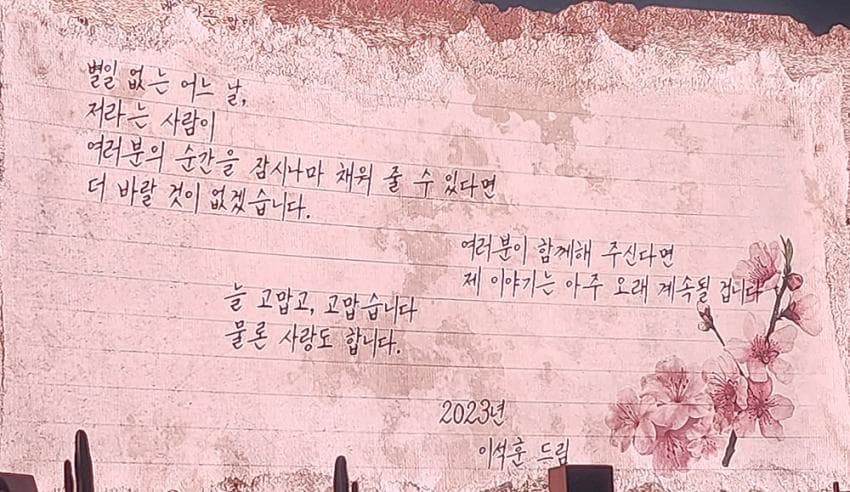 별일 없는 어느 날,
저라는 사람이
여러분의 순간을 잠시나마 채워 줄 수 있다면
더 바랄 것이 없겠습니다.
여러분이 함께해 주신다면
제 이야기는 아주 오래 계속될 겁니다
늘 고맙고, 고맙습니다
물론 사랑도 합니다.
2023년
이석훈 드림